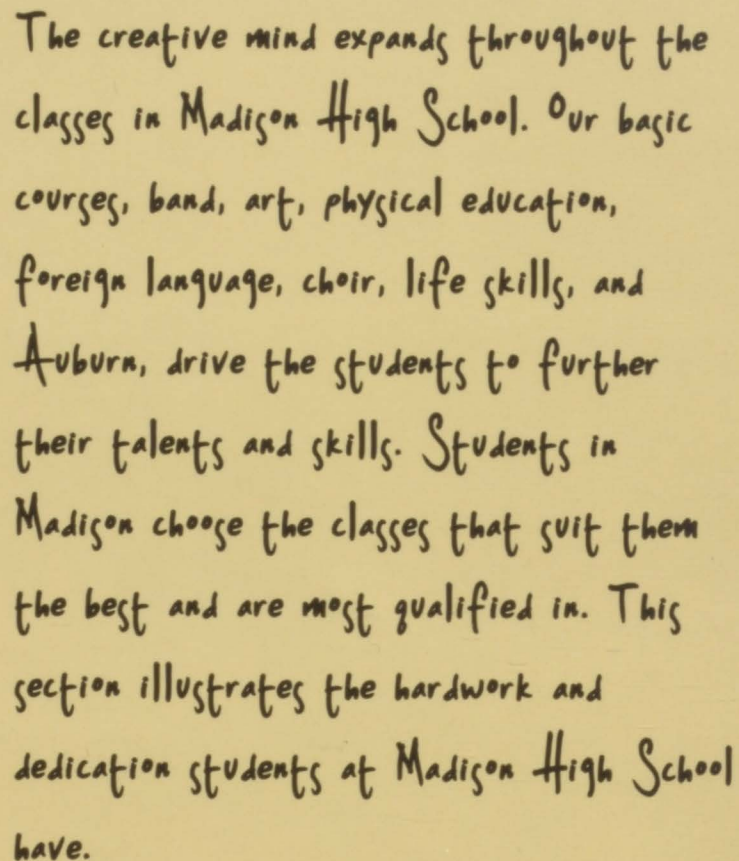 The creative mind expands throughout the
classes in Madison High School. Our basic
courses, band, art, physical education,
foreign language, choir, life skills, and
Auburn, drive the students to further
their talents and skills. Students in
Madison choose the classes that suit them
the best and are most qualified in. This
section illustrates the hardwork and
dedication students at Madison High School
have.